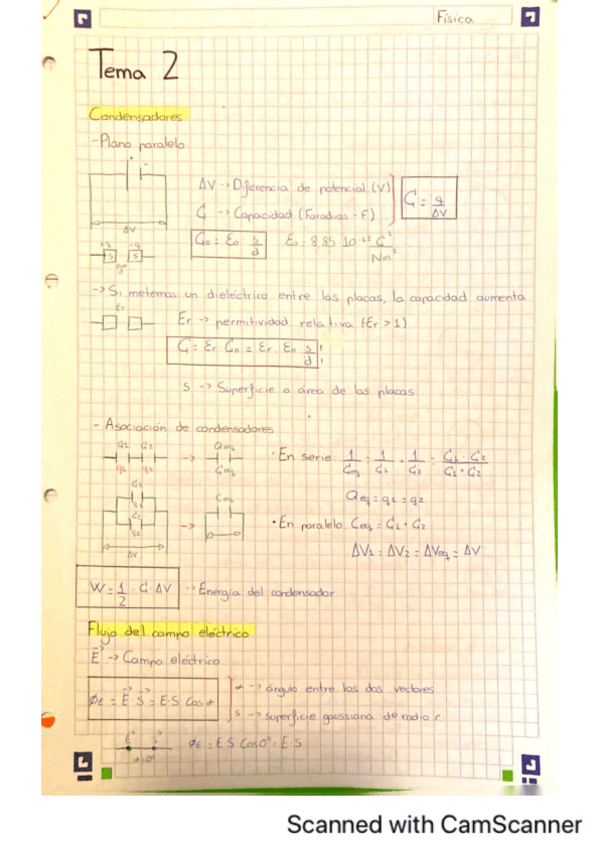 Física
Tema 2
Condensadores
- Plano paralelo
+ -
ΔV
ΔV -> Diferencia de potencial (V)
C -> Capacidad (Faradios - F)
C = q/ΔV
C₀ = ε₀ · s/d
ε₀ = 8'85 · 10⁻¹² C²/Nm²
+q -q
S S
-> Si metemos un dieléctrico entre las placas, la capacidad aumenta
εr
εr -> permitividad relativa (εr > 1)
C = εr · C₀ = εr · ε₀ s/d
S -> Superficie o área de las placas
- Asociación de condensadores
C₁ C₂ -> Qeq
q₁ q₂ Ceq
· En serie: 1/Ceq = 1/C₁ + 1/C₂ = C₁ · C₂/C₁ + C₂
Qeq = q₁ = q₂
C₁ q₁ C₂ q₂ -> Ceq
ΔV
· En paralelo Ceq = C₁ + C₂
ΔV₁ = ΔV₂ = ΔVeq = ΔV
W = 1/2 · C · ΔV -> Energía del condensador
Flujo del campo eléctrico
E -> Campo eléctrico
ΦE = E · S = E · S · Cos α
α -> ángulo entre los dos vectores
S -> superficie gaussiana de radio r
E S
α=0°
ΦE = E · S · Cos 0° = E · S
Scanned with CamScanner